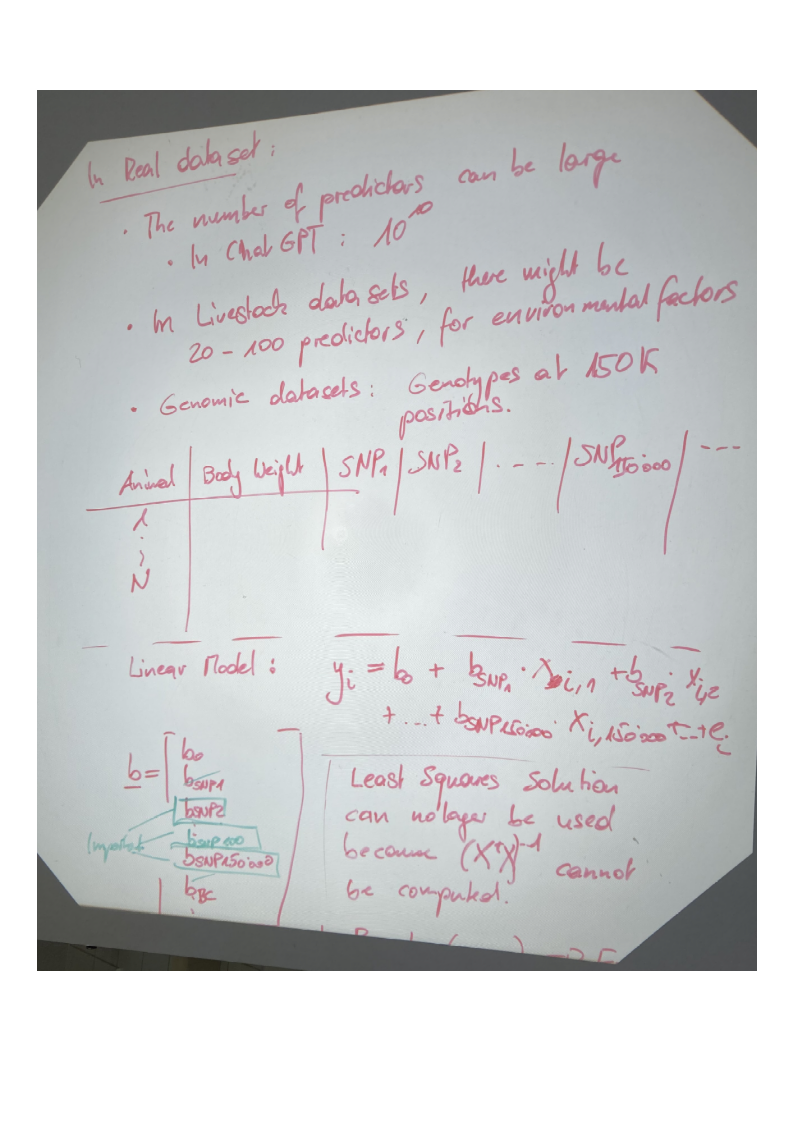 In Real dataset:
· The number of predictors can be large
· In ChatGPT: 10^10
· In Livestock datasets, there might be
20 - 100 predictors, for environmental factors
· Genomic datasets: Genotypes at 150K
positions.
Animal | Body Weight | SNP₁ | SNP₂ | .... | SNP₁₅₀'₀₀₀ | ---
1
:
N
Linear Model: yᵢ = b₀ + b_SNP₁ · xᵢ,₁ + b_SNP₂ · xᵢ,₂
+ ... + b_SNP150'000 · xᵢ,₁₅₀'₀₀₀ + -- + eᵢ
b = [ b₀
b_SNP1
b_SNP2
b_SNP100
Important
b_SNP150'000
b_BC
Least Squares Solution
can no lager be used
because (XᵀX)⁻¹ cannot
be computed.